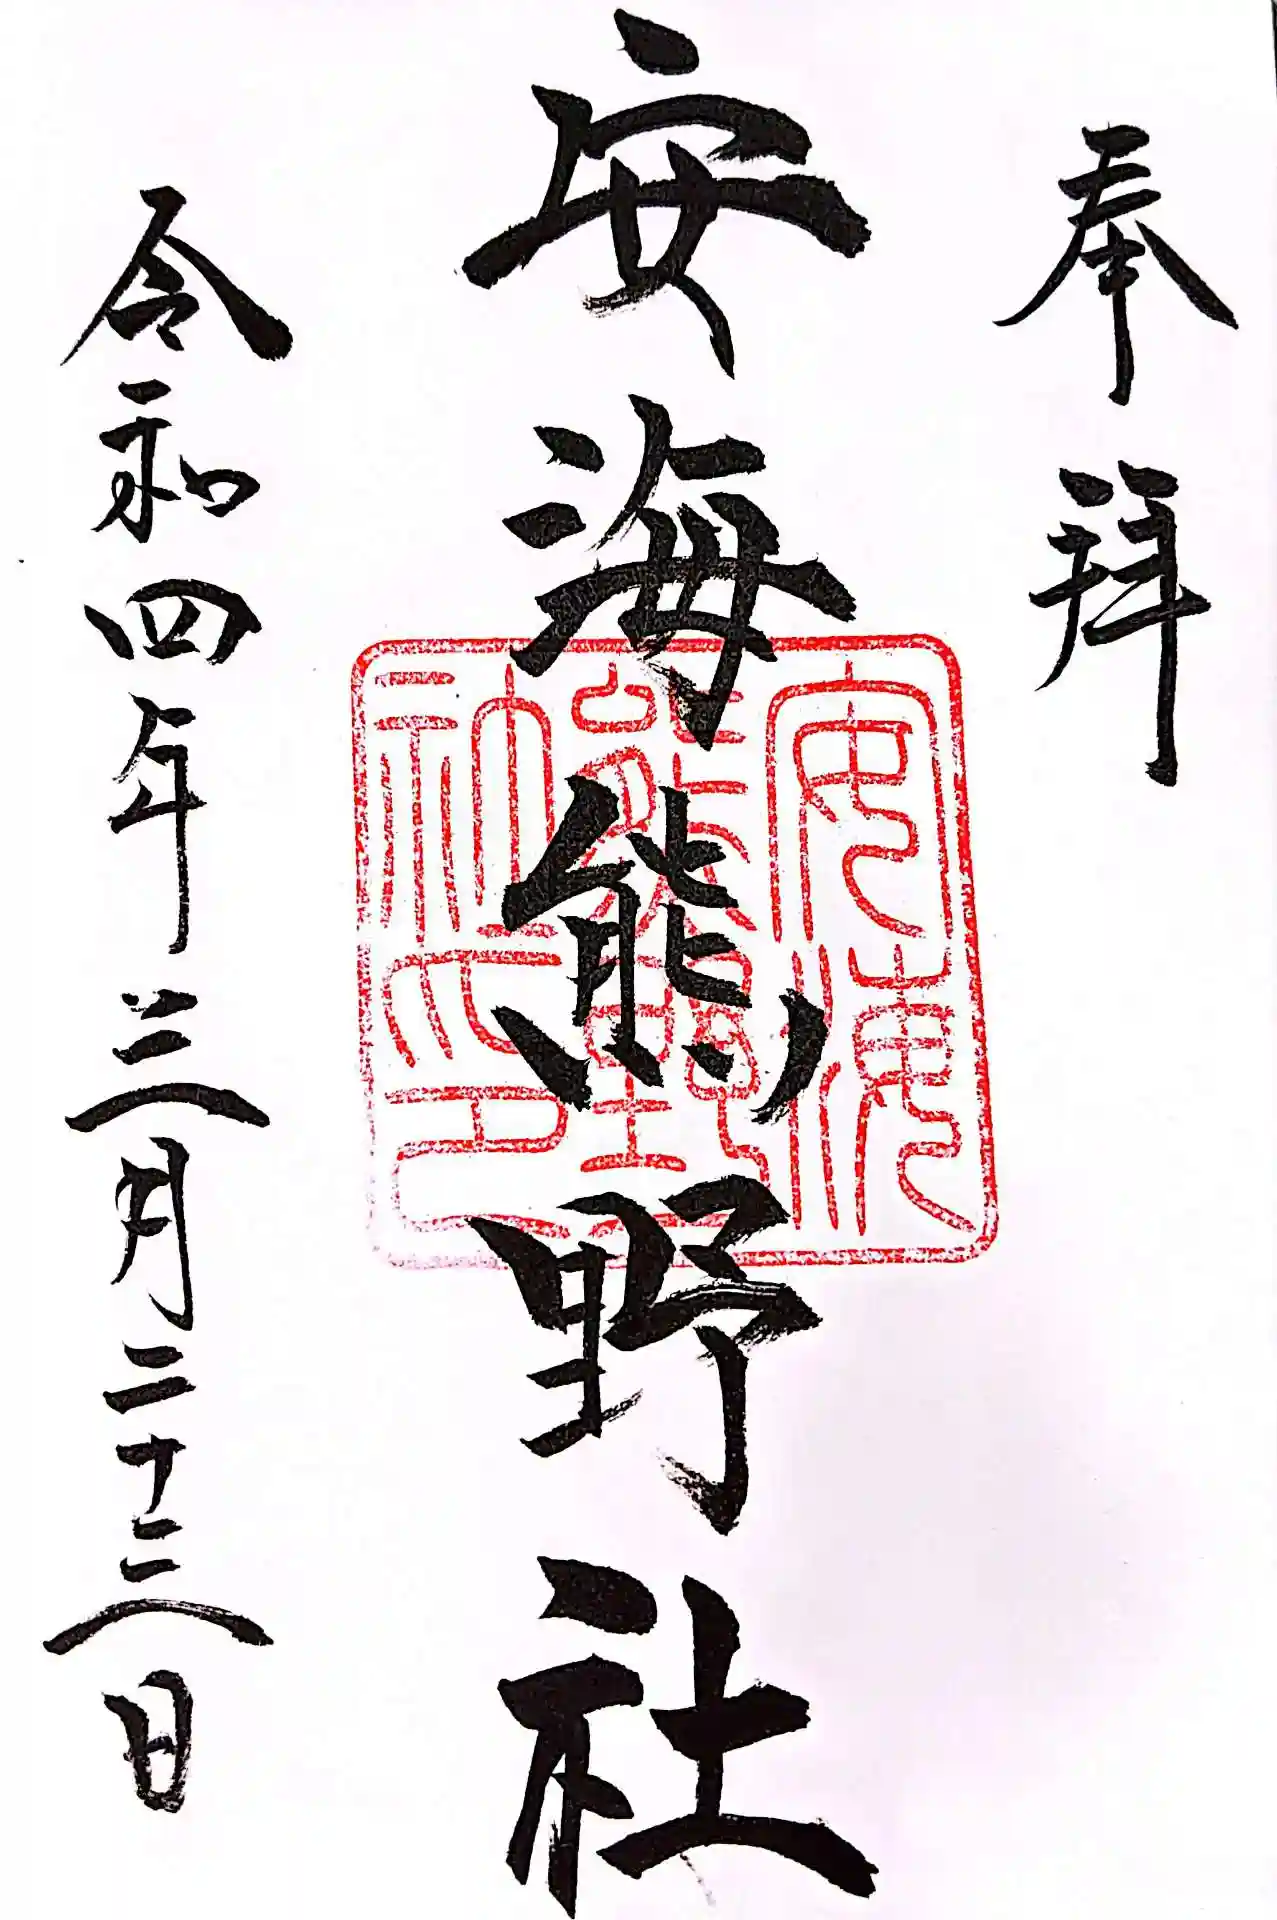 奉拝
安海熊野社
安海
熊野
神社之印
令和四年三月二十三日